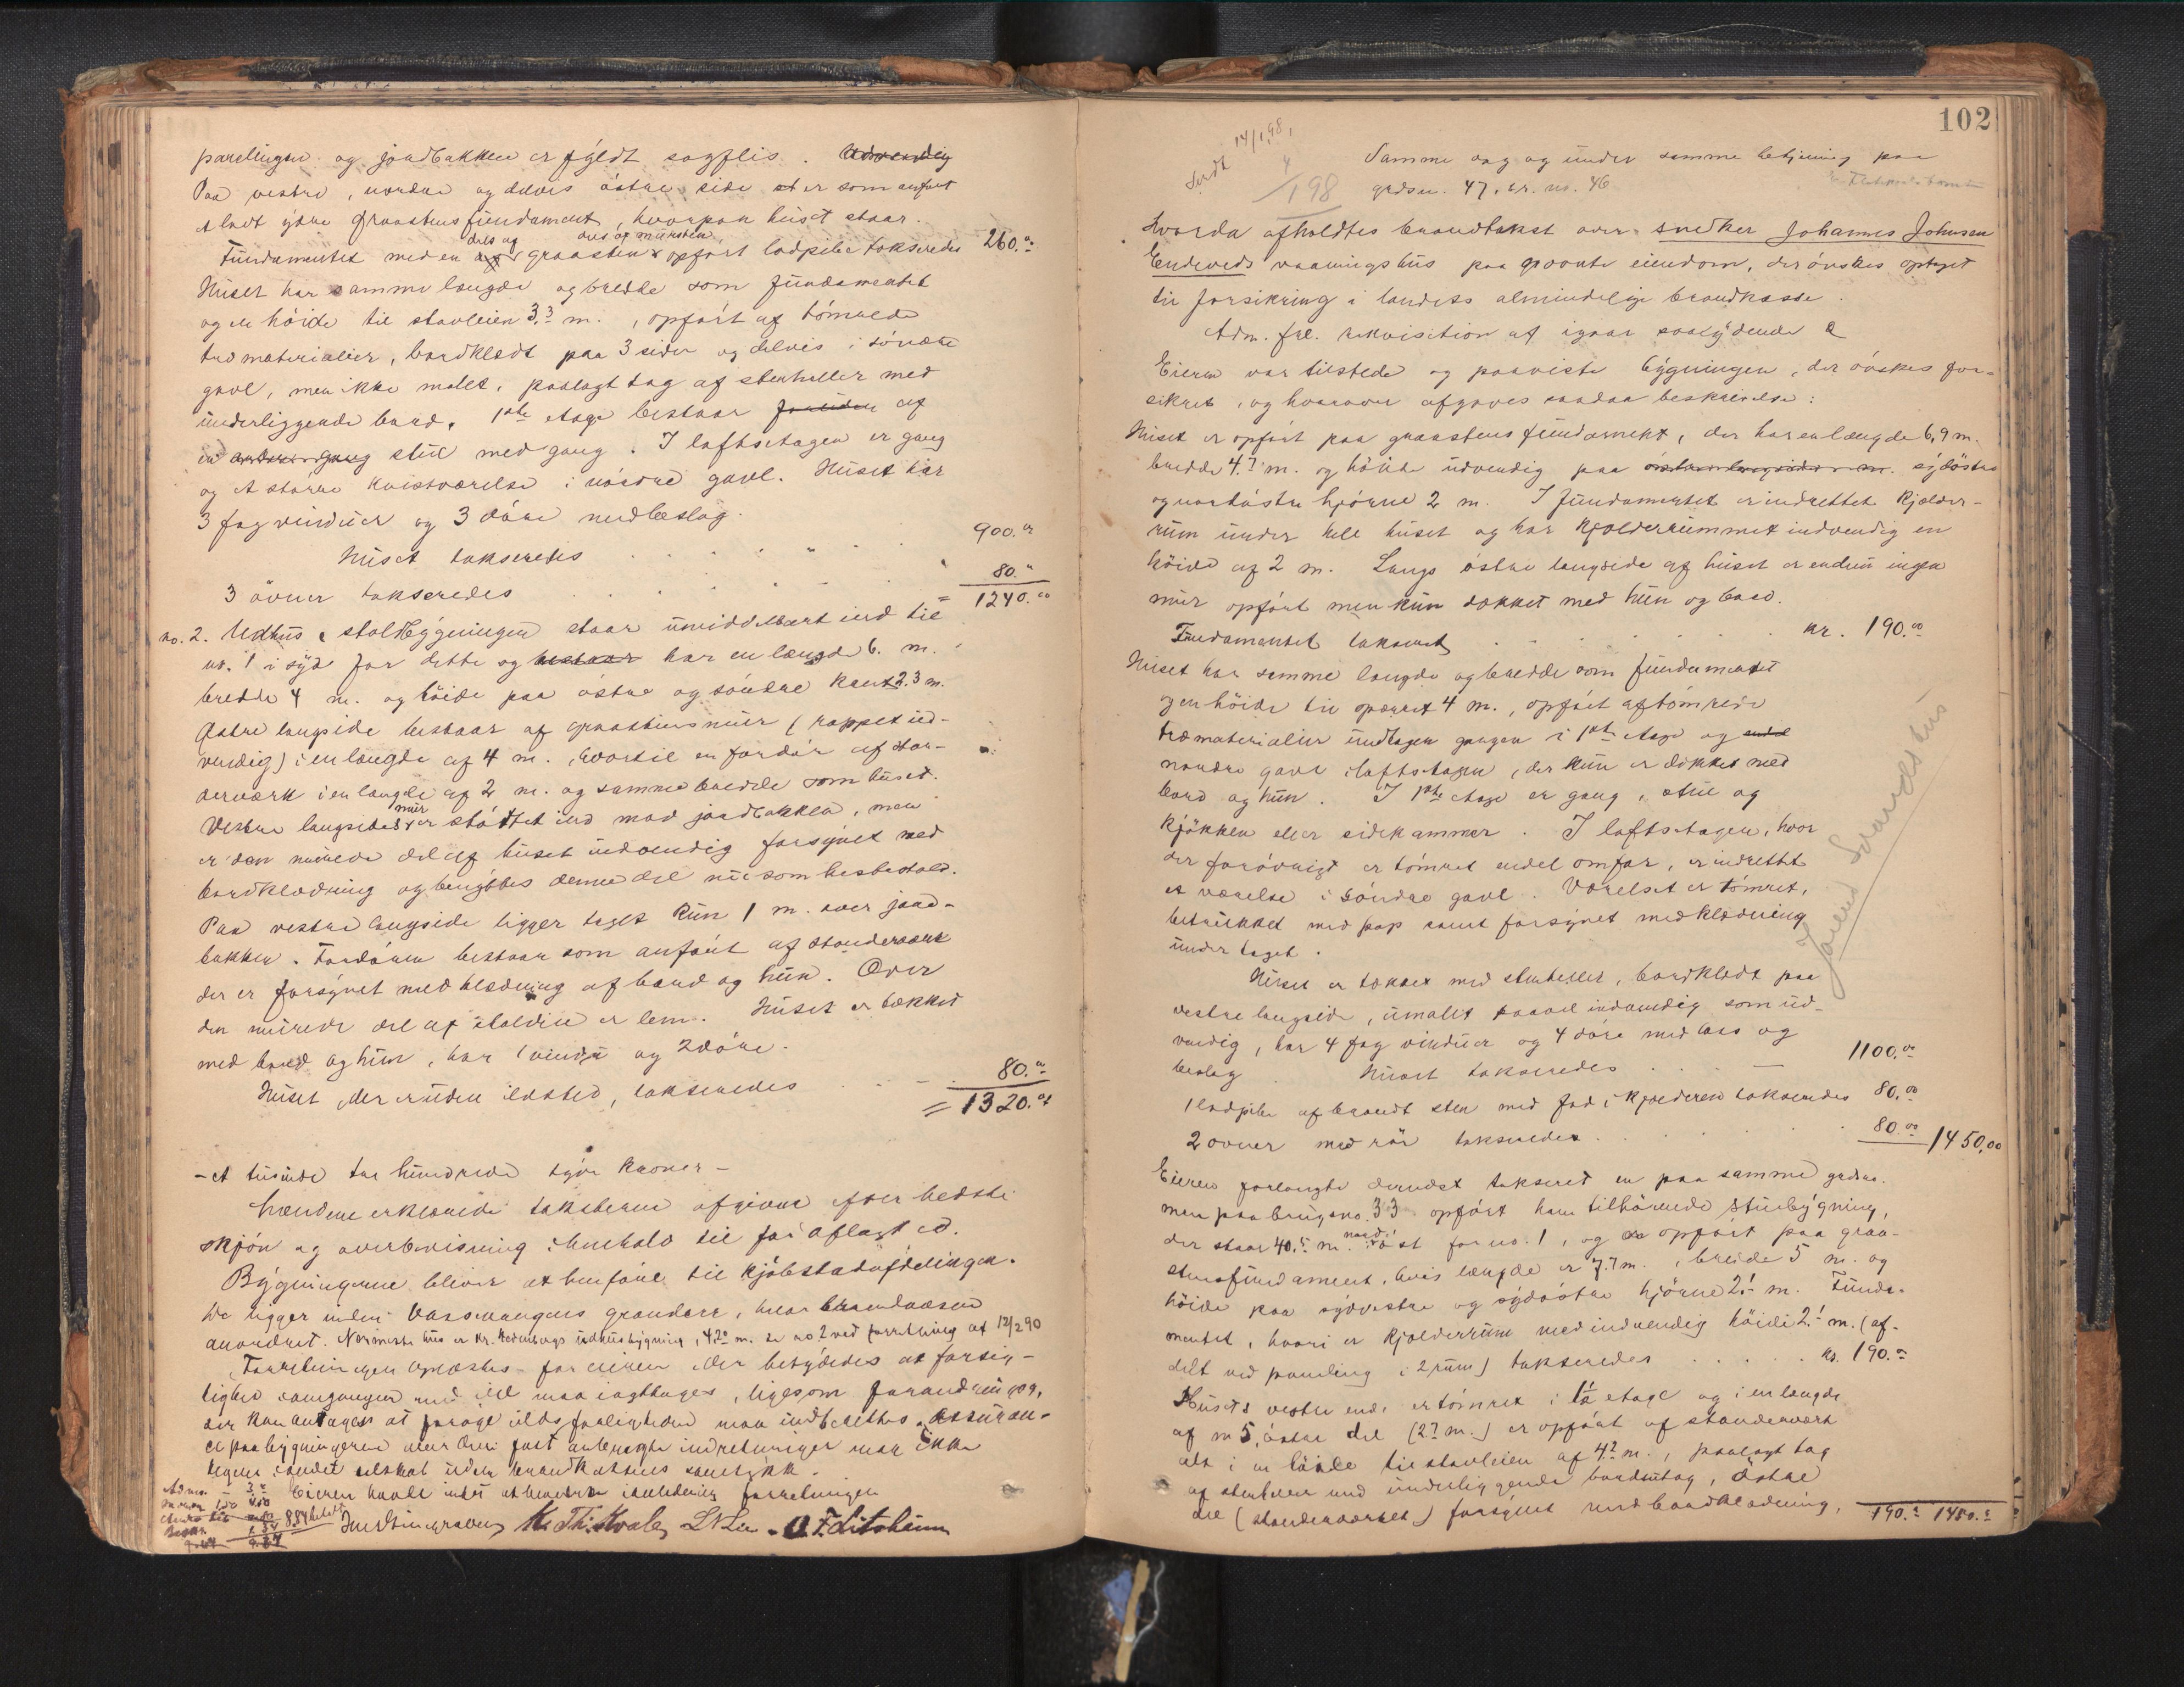 panelingen og jordbakken er fyldt sagflis.
Paa vestre, nordre og delvis østre side er som anført
et lidt ydre graastensfundament, hvorpaa huset staar.
dels og dels af mursten
Fundamentet med en af graasten opført ladpibe takseredes 260.00
Huset har samme længde og bredde som fundamentet
og en höide til stavleien 3.3 m., opført af tömrede
træmaterialier, bordklædt paa 3 sider og delvis i söndre
gavl, men ikke malet, paalagt tag af stenheller med
underliggende bord. 1ste etage bestaar foruden af
en anden gang stue med gang. I loftsetagen er gang
og et større kvistværelse i nordre gavl. Huset har
3 fag vinduer og 3 döre med beslag.
Huset takseredes 900.00
3 ovner takseredes 80.00
= 1240.00
no. 2. Udhus & staldbygningen staar umiddelbart ind til
no. 1 i syd for dette og bestaar har en længde 6. m.
bredde 4 m. og höide paa østre og söndre kant 2.3 m.
Østre langside bestaar af graastensmur (rappet ud-
vendig) i en længde af 4 m., hvortil en fordör af stan-
derværk i en længde af 2 m. og samme bredde som huset.
mur
Vestre langsides er støttet ind mod jordbakken, men
er den murede del af huset indvendig forsynet med
bordklædning og benyttes denne del nu som hestestald.
Paa vestre langside ligger taget kun 1 m. over jord-
bakken. Fordören bestaar som anført af standerværk
der er forsynet med klædning af bord og hun. Over
den murede del af stalden er lem. Huset er tækket
med bord og hun, har 1 vindu og 2 döre.
Huset, der er uden ildsted, takseredes 80.00
= 1320.00
- et tusinde tre hundrede tyve kroner -
Mændene erklærede taksterne afgivne efter bedste
skjön og overbevisning i henhold til för aflagt ed.
Bygningerne bliver at henføre til kjöbstadafdelingen.
De ligger inden Vossevangens grændser, hvor brandvæsen
anordnet. Nærmeste hus er udhusbygning, 42.0 m. se no 2 ved forretning af 12/2 90
Forretningen oplæstes for eieren, der betydedes at forsig-
tighed i omgangen med ild maa iagttages, ligesom forandringer,
der kan antages at foröge ildsfarligheden maa indberettes. Assuran-
ce paa bygningerne eller deri fast anbragte indretninger maa ikke
tegnes i andet selskab uden brandkassens samtykke.
Eieren havde intet at bemærke i anledning forretningen
M. Th. Kvale L. Lie O. F. Litsheim
102
Sendt 14/1 98
4/198
Samme dag og under samme betjening paa
gaardsn. 47, br. no. 46
Svorda afholdtes brandtakst over snedker Johannes Johnsen
Endeveds vaaningshus paa grevnte eiendom, der ønskes optaget
til forsikring i landets almindelige brandkasse.
Adm. frl. rekvisition af igaar saalydende &
Eieren var tilstede og paaviste bygningen, der ønskes for-
sikret, og hvorover afgaves saadan beskrivelse:
Huset er opført paa graastens fundament, der har en længde 6,9 m.
bredde 4.7 m. og höide udvendig paa østre langside m. sydöstre
og nordöstre hjörne 2 m. I fundamentet er indrettet kjælder-
rum under hele huset og har kjælderrummet indvendig en
höide af 2 m. Langs østre langside af huset er endnu ingen
mur opført men kun dækket med hun og bord.
Fundamentet takseret kr. 190.00
Huset har samme længde og bredde som fundamentet
og en höide til opværket 4 m., opført af tömrede
træmaterialier undtagen gangen i 1ste etage og endel
nordre gavl i loftsetagen, der kun er dækket med
bord og hun. I 1ste etage er gang, stue og
kjökken eller sidekammer. I loftsetagen, hvor
der forøvrigt er tömret endel omfar, er indrettet
et værelse i söndre gavl. Værelset er tömret,
betrukket med pap samt forsynet med klædning
under taget.
Huset er tækket med stenheller, bordklædt paa
vestre langside, umalet saavel indvendig som ud-
vendig, har 4 fag vinduer og 4 döre med laas og
beslag. Huset takseredes 1100.00
1 ladpibe af brændt sten med fod i kjælderen takseredes 80.00
2 ovner med rör takseredes 80.00 1450,00
Eieren forlangte dernæst takseret en paa samme gaardsno.
men paa brugsno. 33 opført ham tilhörende stuebygning,
nord
der staar 40.5 m. øst for no. 1, og er opført paa graa-
stensfundament, hvis længde er 7.7 m., bredde 5 m. og
höide paa sydvestre og sydöstre hjörne 2.1 m. Funda-
mentet, hvori er kjælderrum med indvendig höide 2.1 m. (af-
delt ved paneling i 2 rum) takseredes kr. 190.00
Husets vestre ende er tömret i 1ste etage og i en længde
af m 5, østre del (2.7 m.) er opført af standerværk
alt i en höide til stavleien af 4.2 m., paalagt tag
af stenheller med underliggende bordentag, østre
del (standerværket) forsynet med bordklædning,
190.00 1450.00